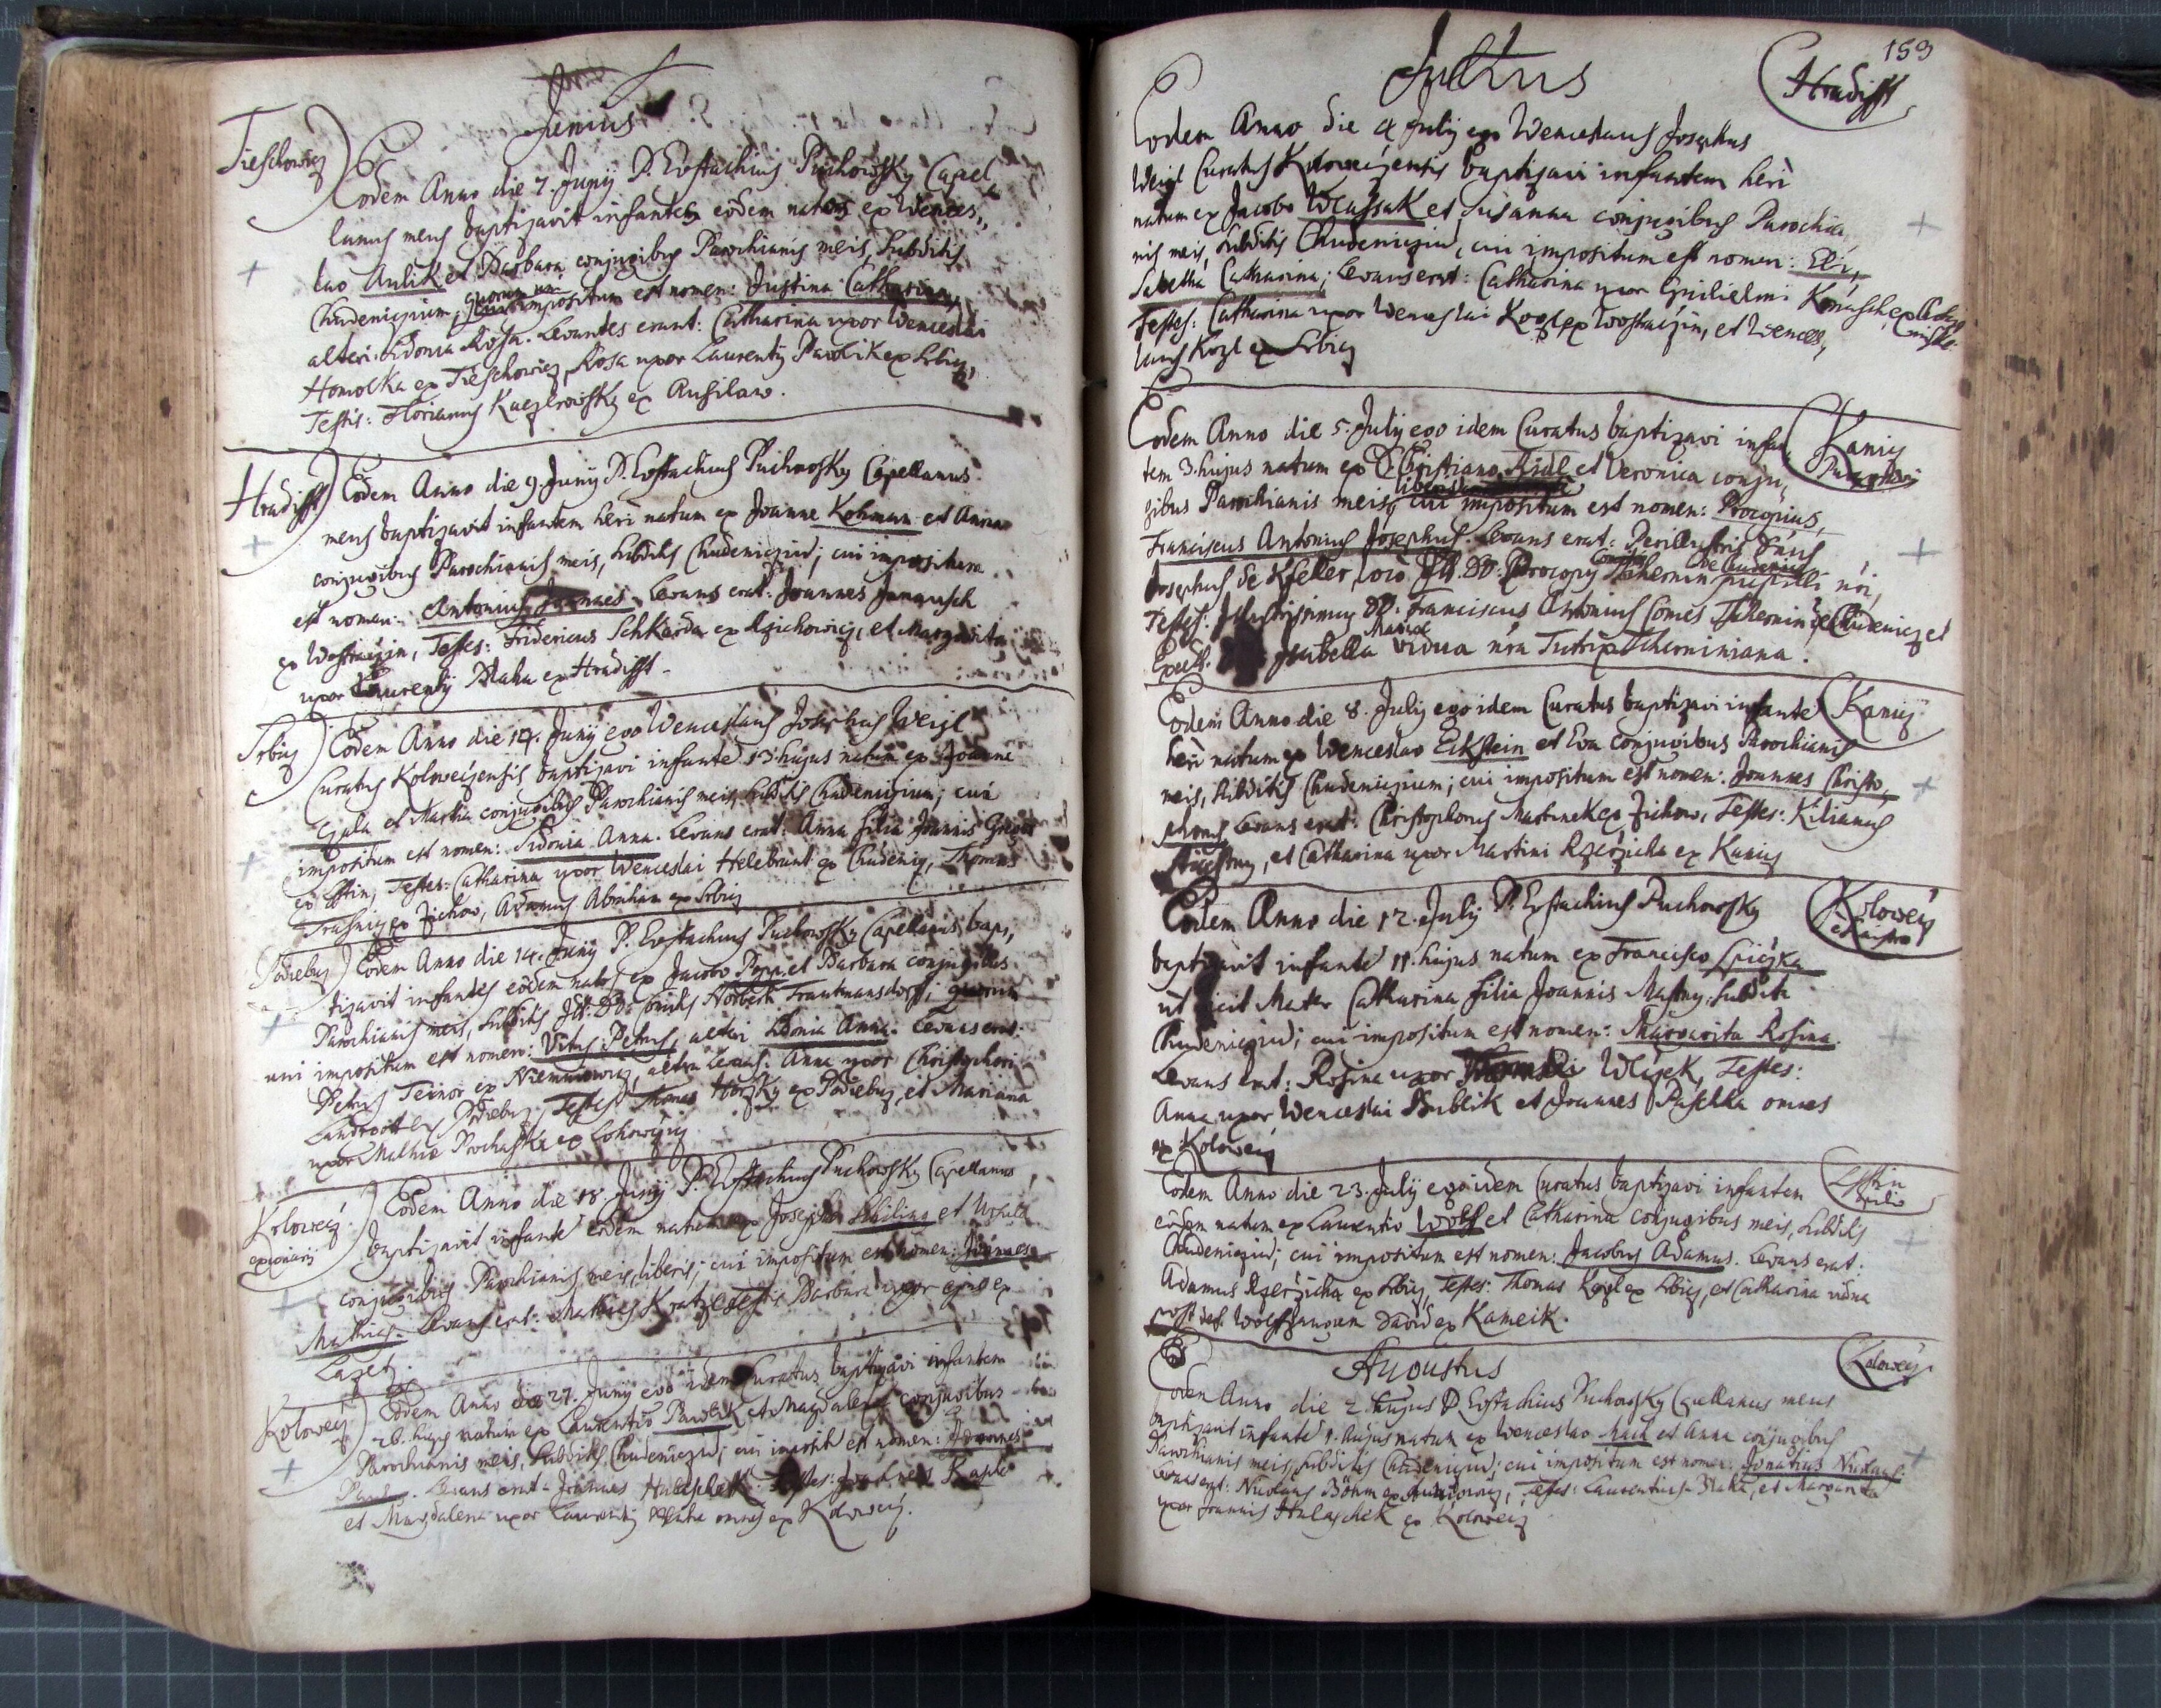 Junius
Tieschowicz
Eodem Anno die 7. Junij P. Eustachius Puchowsky Capel,
lanus meus baptizavit infantes eodem natos ex Wences,,
lao Aulik et Barbara conjugibus Parochianis meis, Subditis
Chudenizium, quorum uni impositum est nomen: Justina Catharina,
alteri: Sidonia Rosa. Levantes erant: Catharina uxor Wenceslai
Homolka ex Tieschowicz, Rosa uxor Laurentij Pawlik ex Srbicz,
Testis: Florianus Kaczerowsky ex
Hradisst
Eodem Anno die 9. Junij P. Eustachius Puchowsky Capellanus
meus baptizavit infantem heri natum ex Joanne Kohman et Anna
conjugibus Parochianis meis, Subditis Chudeniziu; cui impositum
est nomen: Antonius Joannes. Levans erat: Joannes Janausch
ex Wostraczin, Testes: Fridericus Schkarda ex Azichowicz, et Margarita
uxor Laurentij Blaha ex Hradisst
Srbicz
Eodem Anno die 14. Junij ego Wenceslaus Josephus Weigl
Curatus Koloweczensis baptizavi infante 13. hujus natum ex Joanne
et Martha conjugibus Parochianis meis, Subditis Chudenizium; cui
impositum est nomen: Sidonia Anna. Levans erat: Anna filia Joannis Gregor
ex Sstin, Testes: Catharina uxor Wenceslai Helebrant ex Chudenicz, Thomas
ex Zichow, Adamus Abraham ex Srbicz
Podiebuz
Eodem Anno die 14. Junij P. Eustachius Puchowsky Capellanus bap,
tizavit infantes eodem natos ex Jacobo Popp et Barbara conjugibus
Parochianis meis, Subditis Norberti Trautmansdorf; quorum
uni impositum est nomen: Vitus Petrus, alteri Sidonia Anna. Levans erat:
Petrus Teinor ex Niemczowicz, altera Levans: Anna uxor Christophori
ex Podiebuz, Testes Thomas Horzky ex Podiebuz, et Mariana
uxor Mathiæ Prochaska ex
Kolowecz
Eodem Anno die 18. Junij P. Eustachius Puchowsky Capellanus
baptizavit infante eodem natum ex Josepho et
conjugibus Parochianis meis, liberis; cui impositum est nomen: Joannes
Mathias. Levans erat: Mathias Kratz Testis Barbara uxor ejus ex
Kolowecz
Eodem Anno die 27. Junij ego idem Curatus baptizavi infantem
26. hujus natum ex Laurentio Pawlik et Magdalena conjugibus
Parochianis meis, Subditis Chudeniziu; cui imposit est nomen: Joannes
Paulus. Levans erat: Joannes Hulaschek Testes:
et Magdalena uxor Laurentij Blaha omnes ex Kolowecz.
159
Julius
Hradisst
Eodem Anno die 4 Julij ego Wenceslaus Josephus
Weigl Curatus Koloweczensis baptizavi infantem heri
natum ex Jacobo et Susanna conjugibus Parochia
nis meis, Subditis Chudeniziu, cui impositum est nomen: Eli,
sabetha Catharina; Levans erat: Catharina uxor Guilielmi
Testes: Catharina uxor Wenceslai Kozl ex Wostraczin, et Wences,
laus Kozl ex Srbicz
Kanicz
Eodem Anno die 5. Julij ego idem Curatus baptizavi infan
tem 3. hujus natum ex D. Christiano et Veronica conju,
gibus Parochianis meis, liberis cui impositum est nomen: Procopius,
Franciscus Antonius Josephus. Levans erat: Perillustris Dnus
Josephus de Kfeller, loco Ill. DD. Procopij Comitis Tschernin de Chudenicz pupilli nri,
Testes: Illustrissimus DD. Franciscus Antonius Comes Tschernin de Chudenicz et
Isabella Maria vidua nra Tutrix Tscherniniana.
Kanicz
Eodem Anno die 8. Julij ego idem Curatus baptizavi infante
heri natum ex Wenceslao Eckstein et Eva conjugibus Parochianis
meis, Subditis Chudenizium; cui impositum est nomen: Joannes Christo,
phorus Levans erat: Christophorus Martinek ex Zichow, Testes: Kilianus
et Catharina uxor Martini Rzerzicha ex Kanicz
Kolowecz
Eodem Anno die 12. Julij P. Eustachius Puchowsky
baptizavit infante 11. hujus natum ex Francisco Spiczka
ut dicit Mater Catharina filia Joannis Mastny, Subdita
Chudeniziu; cui impositum est nomen: Margarita Rosina.
Levans erat: Rosina uxor Wlczek, Testes:
Anna uxor Wenceslai Bublik et Joannes Paschka omnes
ex Kolowecz
Sstin
Eodem Anno die 23. Julij ego idem Curatus baptizavi infantem
eodem natum ex Laurentio Wolf et Catharina conjugibus meis, Subditis
Chudeniziu; cui impositum est nomen: Jacobus Adamus. Levans erat:
Adamus Rzerzicha ex Srbicz, Testes: Thomas Kozl ex Srbicz, et Catharina vidua
post def. Wolfgangum David ex Kameik.
Augustus
Kolowecz
Eodem Anno die 2. hujus P. Eustachius Puchowsky Capellanus meus
baptizavit infante 1. hujus natum ex Wenceslao Mach et Anna conjugibus
Parochianis meis, Subditis Chudeniziu; cui impositum est nomen: Ignatius Nicolaus.
Levans erat: Nicolaus Böhm ex Testes: Laurentius Blaha, et Margarita
uxor Joannis Hulaschek ex Kolowecz